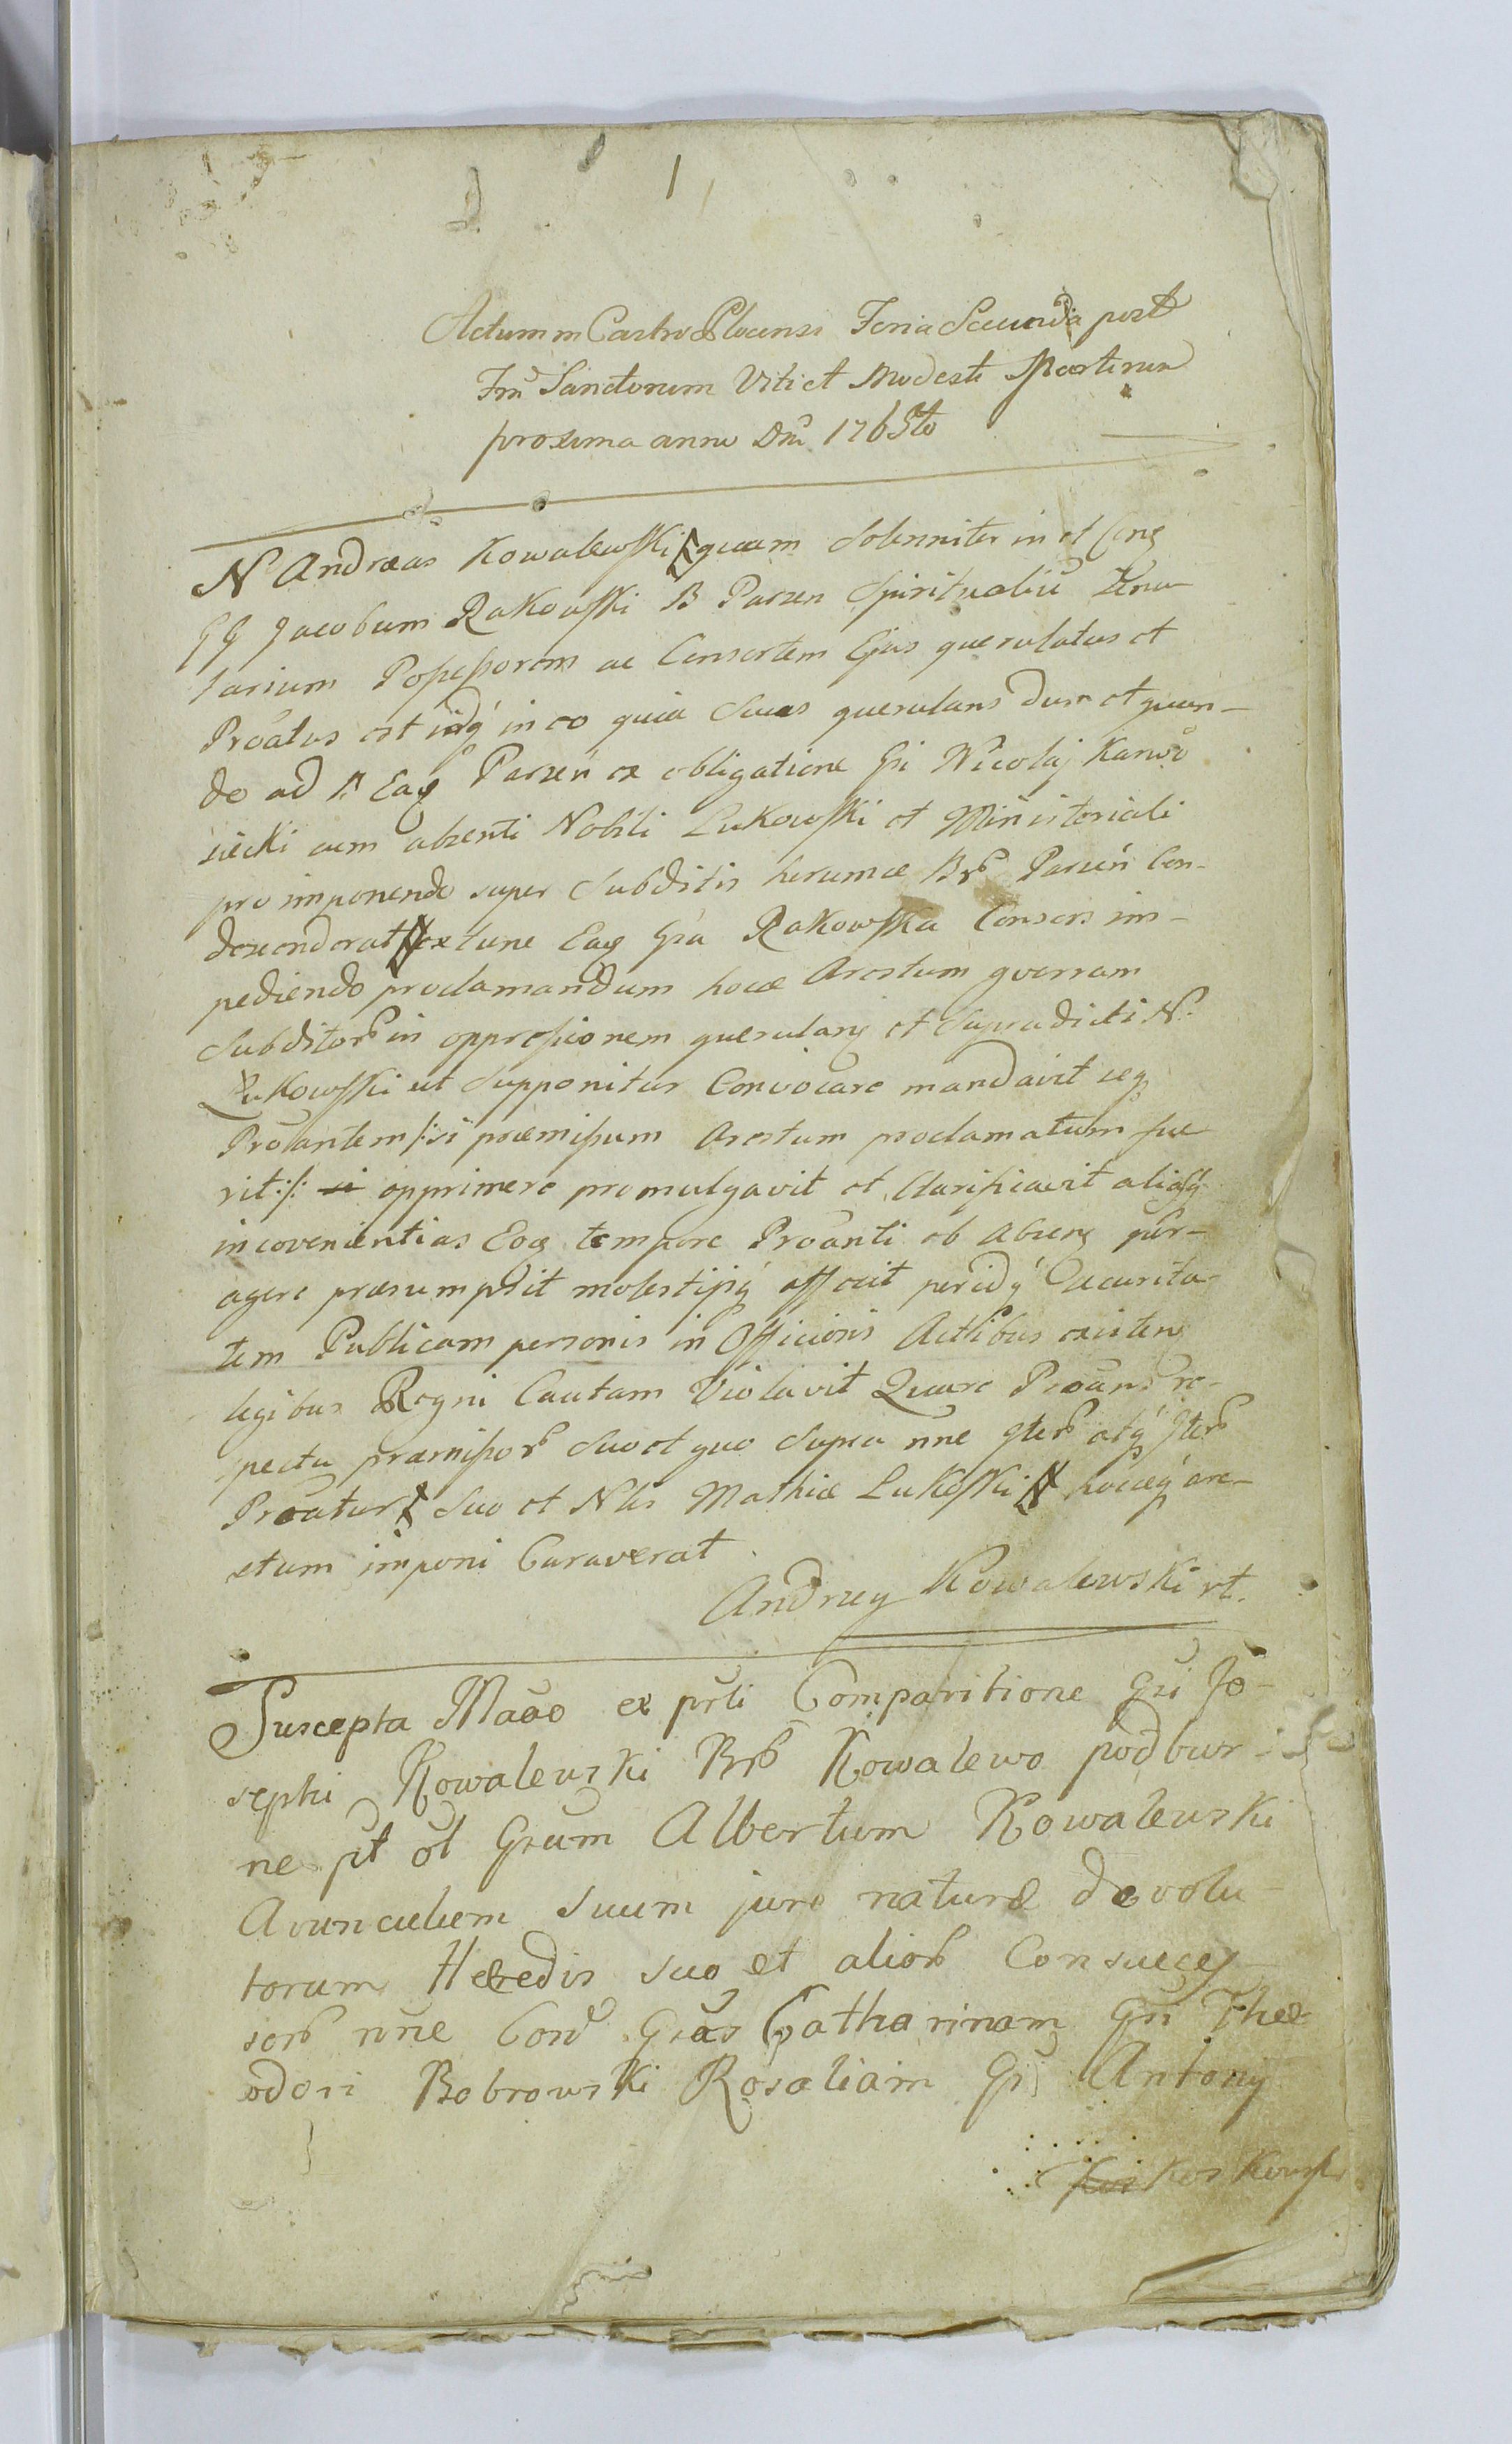 1
Actum in Castro Plocensi Feria Secunda post
Fm Sanctorum Viti et Modesti Martirum
proxima anno Dni 1765to
N Andreas Kowalewski quam Solenniter in et Cons
GG Jacobum Rakowski B Parzen Spiritualiũ
tarium Possessorem ac Consortem Ejus querulatus et
Proatus est idq in eo quia Suus querulans dum et quan-
do ad B Eaq Parzeń ex obligatione Gsi Nicolaj Karwo
siecki cum absenti Nobili Lukowski et Ministeriali
pro imponendo super Subditis Parzeń Con-
descenderat ex tunc Eaq Gsa Rakowska Consors im-
pediendo proclamandum hocce Arestum
Subditor in oppressionem querulans et Supradicti N.
Lukowski ut Supponitur Convocare mandavit seq
Proantem /:si præmissum Arestum proclamatum fue
rit:/: opprimere promulgavit et Clarificavit aliasq
incovenientias Eoq tempore Proanti ob Absens per-
agere præsumpsit molestijsq affecit peridq Securita-
tem Publicam personis in Officiosis Actibus existens
legibus Regni Cautam Violavit Quare Proans re-
spectu præmissor Suo et quo Supra nne gter atq Iter
Proatur Suo et Nlis Mathiæ Lukoski hocceq are-
stum imponi Curaverat.
Andrzey Kowalewski rt.
Suscepta Maoe ex prli Comparitione Gsi Jo-
sephi Kowalewski Br Kowalewo podbor-
ne pt ol Gsum Albertum Kowalewski
Avunculum Suum jure naturæ devolu-
torum Heredis suo et alior Consucces-
sor nne Cord Gsas Catharinam Gsi The-
odori Bobrowski Rosaliam Gsi Antonij